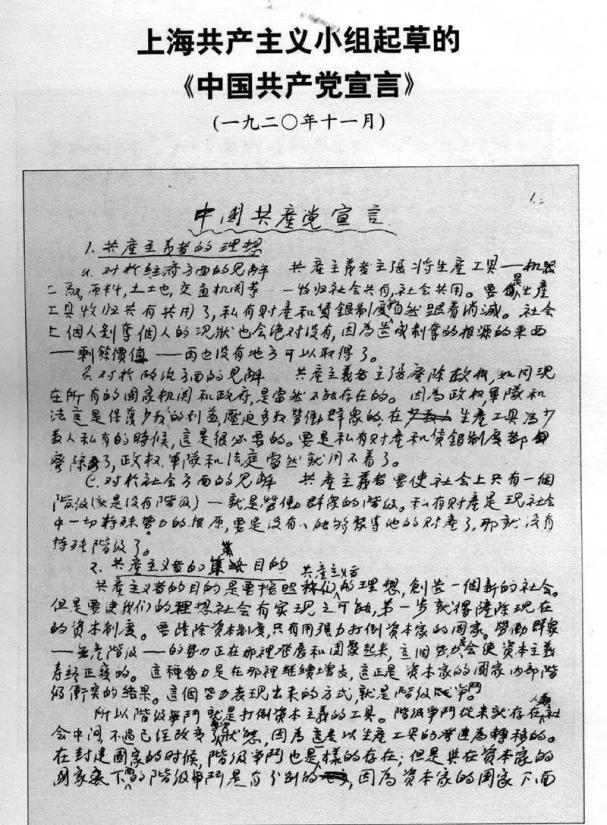 上海共产主义小组起草的
《中国共产党宣言》
(一九二〇年十一月)
1.
中国共產党宣言
1. 共產主義者的理想
a. 对於经济方面的見解 共產主義者主張将生產工具——机器
工廠,原料,土地,交通机関等——收归社会共有,社会共用。要是生產
工具收归共有共用了,私有财產和賃銀制度自然跟着消滅。社会
上個人剥奪個人的况狀也会绝对没有,因為造成剥奪的根源的東西
——剩餘價值——再也没有地方可以取得了。
B. 对於政治方面的見解 共產主義者主張廢除政权,如同現
在所有的國家机関和政府,是當然不能存在的。因為政权軍隊和
法庭是保護少数的利益,壓迫多数勞働群眾的,在生產工具為少
数人私有的時候,這是很必要的。要是私有财產和賃銀制度都
廢除了,政权、軍隊和法庭當然就用不着了。
C. 对於社会方面的見解 共產主義者要使社会上只有一個
階级(就是没有階级)——就是勞働群眾的階级。私有财產是現社会
中一切特殊势力的根原,要是没有人能够聚集他的财產了,那就没有
特殊階级了。
2. 共產主义者的目的
共產主义者的目的是要按照共產主义者的理想,創造一個新的社会。
但是要使我们的理想社会有实現之可能,第一步就得剷除現在
的资本制度。要剷除资本制度,只有用强力打倒资本家的國家。勞働群眾
——無產階级——的势力正在那裡發展和團聚起來,這個势力会使资本主義
寿終正寢的。這種势力是在那裡继续增長,這正是资本家的國家内部階
级衝突的结果。這個势力表現出来的方式,就是階级争鬥。
所以階级争鬥就是打倒资本主義的工具。階级争鬥從来就存在人類社
会中间,不過已经改变了狀態,因為這是以生產工具的發達為轉移的。
在封建國家的时候,階级争鬥也是一樣的存在;但是與在资本家的
國家底下的階级争鬥是有分别的,因為资本家的國家下面